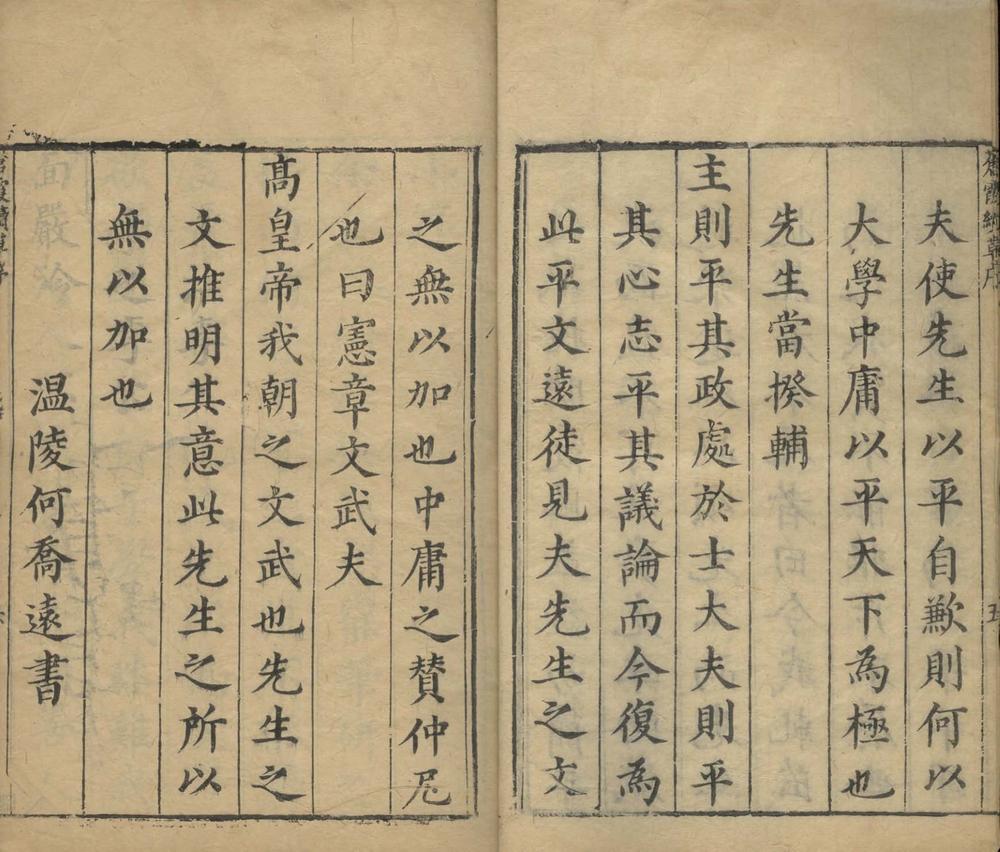 夫使先生以平自歉則何以
大學中庸以平天下為極也
先生當揆輔
主則平其政處於士大夫則平
其心志平其議論而今復為
此平文遠徒見夫先生之文
之無以加也中庸之贊仲尼
也曰憲章文武夫
高皇帝我朝之文武也先生之
文推明其意此先生之所以
無以加也
温陵何喬遠書